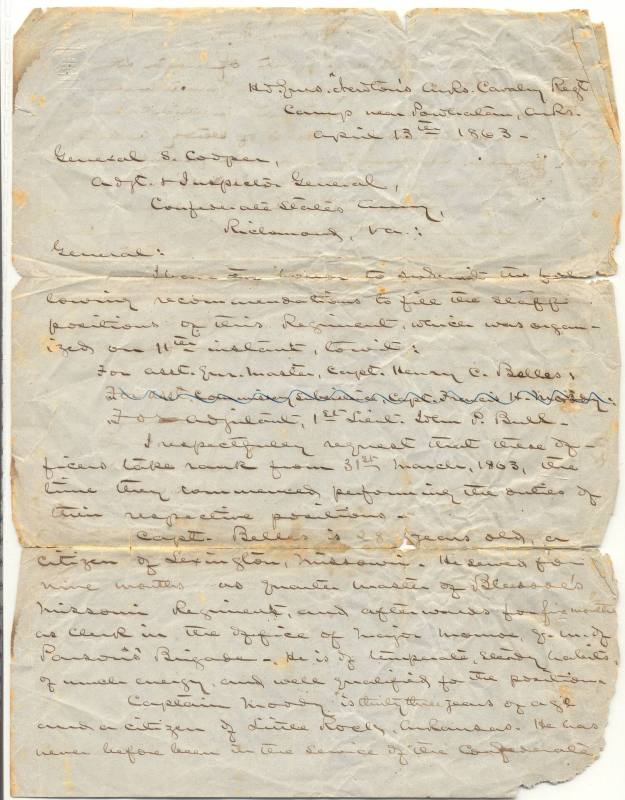 Hd. Qurs. Newton's Arks. Cavalry Regt
Camp near Powhatan, Arks.
April 13th 1863 -
General S. Cooper,
Adjt. & Inspector General,
Confederate States Army,
Richmond, Va.:
General:
I have the honor to submit the fol-
lowing recommendations to fill the staff
positions of this Regiment, which was organ-
ized on 11th instant, towit:
For asst. Qur. Master, Capt. Henry C. Belles;
For Asst Commissary Capt. H. Moody.
For adjutant, 1st Lieut. John P. Bull -
I respectfully request that these of-
ficers take rank from 31st March, 1863, the
time they commenced performing the duties of
their respective positions -
Capt. Belles is 28 years old, a
citizen of Lexington, Missouri. He served for
nine months as quarter master of Bledsoe's
Missouri Regiment, and afterwards for months
as clerk in the office of Major Monroe, q. m. of
Parsons' Brigade - He is of temperate, steady habits,
of much energy, and well qualified for the position.
Captain Moody is thirty three years of age
and a citizen of Little Rock, Arkansas. He has
never before been in the service of the Confederate